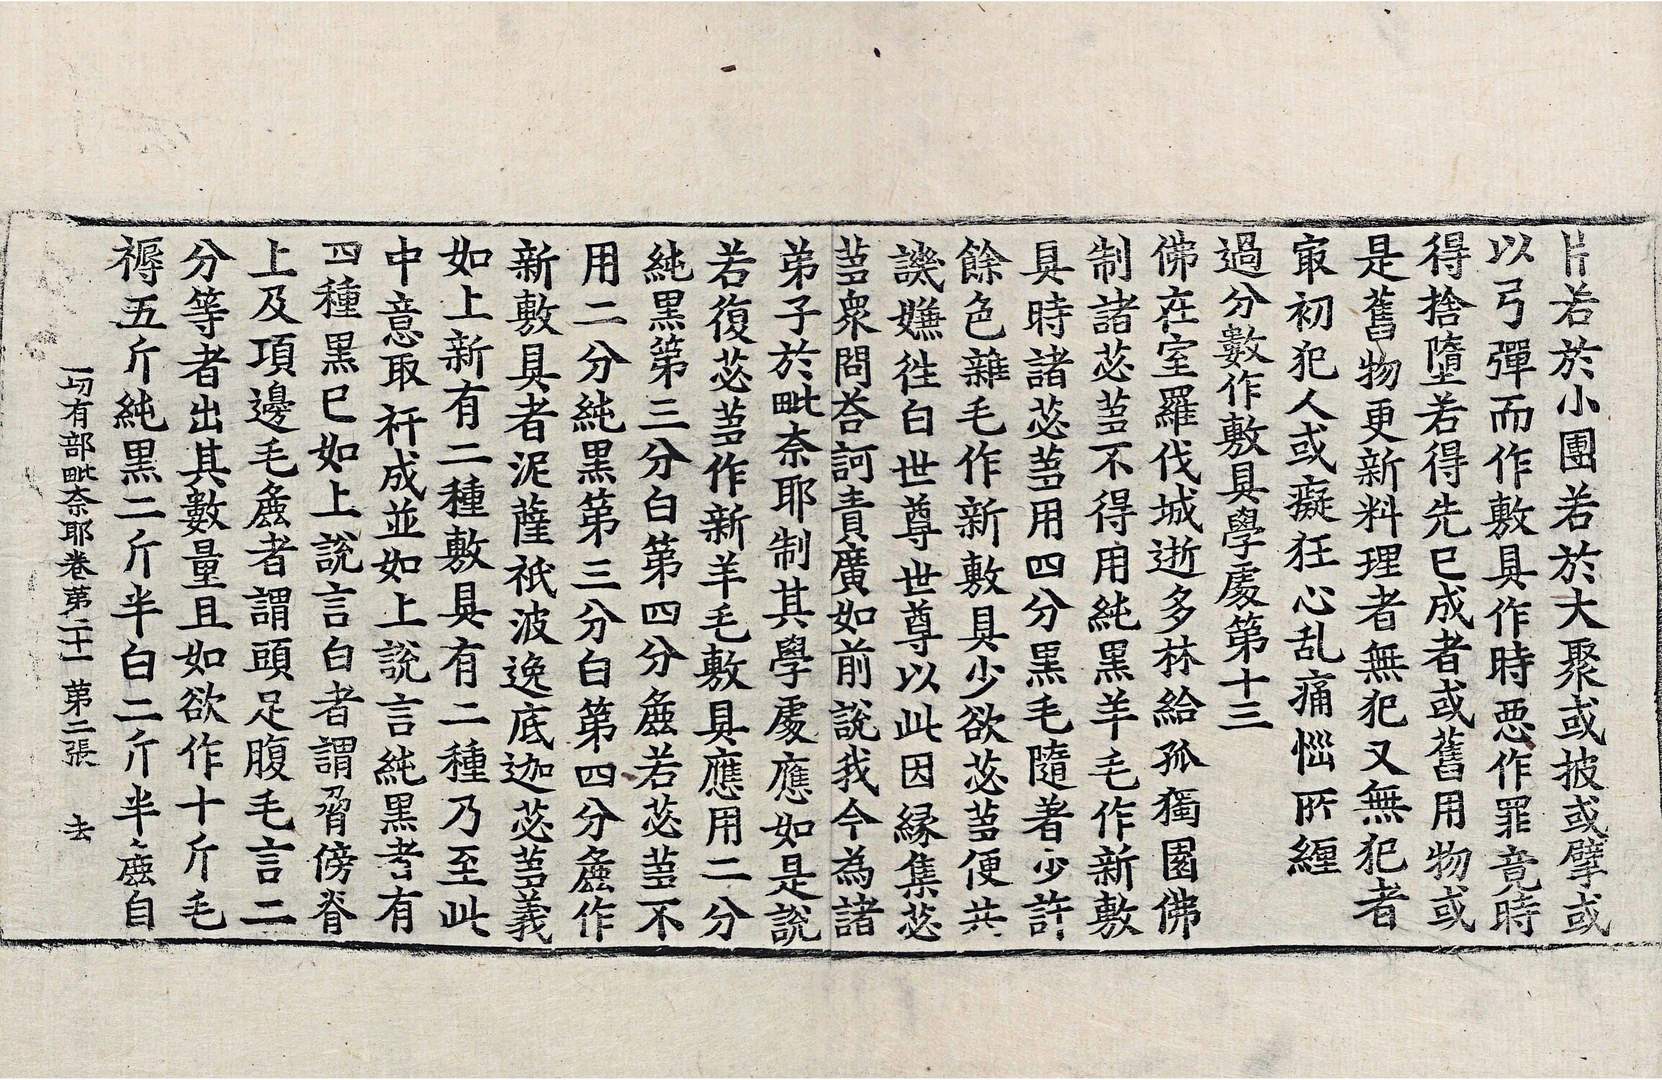 片若於小團若於大聚或披或擘或
以弓彈而作敷具作時惡作罪竟時
得捨墮若得先已成者或舊用物或
是舊物更新料理者無犯又無犯者
㝡初犯人或癡狂心乱痛惱所纏
過分數作敷具學處第十三
佛在室羅伐城逝多林給孤獨園佛
制諸苾芻不得用純黑羊毛作新敷
具時諸苾芻用四分黑毛隨著少許
餘色雜毛作新敷具少欲苾芻便共
譏嫌徃白世尊世尊以此因縁集苾
芻衆問荅訶責廣如前說我今為諸
弟子於毗奈耶制其學處應如是說
若復苾芻作新羊毛敷具應用二分
純黑第三分白第四分麁若苾芻不
用二分純黑第三分白第四分麁作
新敷具者泥薩祇波逸底迦苾芻義
如上新有二種敷具有二種乃至此
中意取秆成並如上說言純黑者有
四種黑已如上說言白者謂脅傍脊
上及項邊毛麁者謂頭足腹毛言二
分等者出其數量且如欲作十斤毛
褥五斤純黒二斤半白二斤半麁自
一切有部毗奈耶卷第二十一 第二張 去